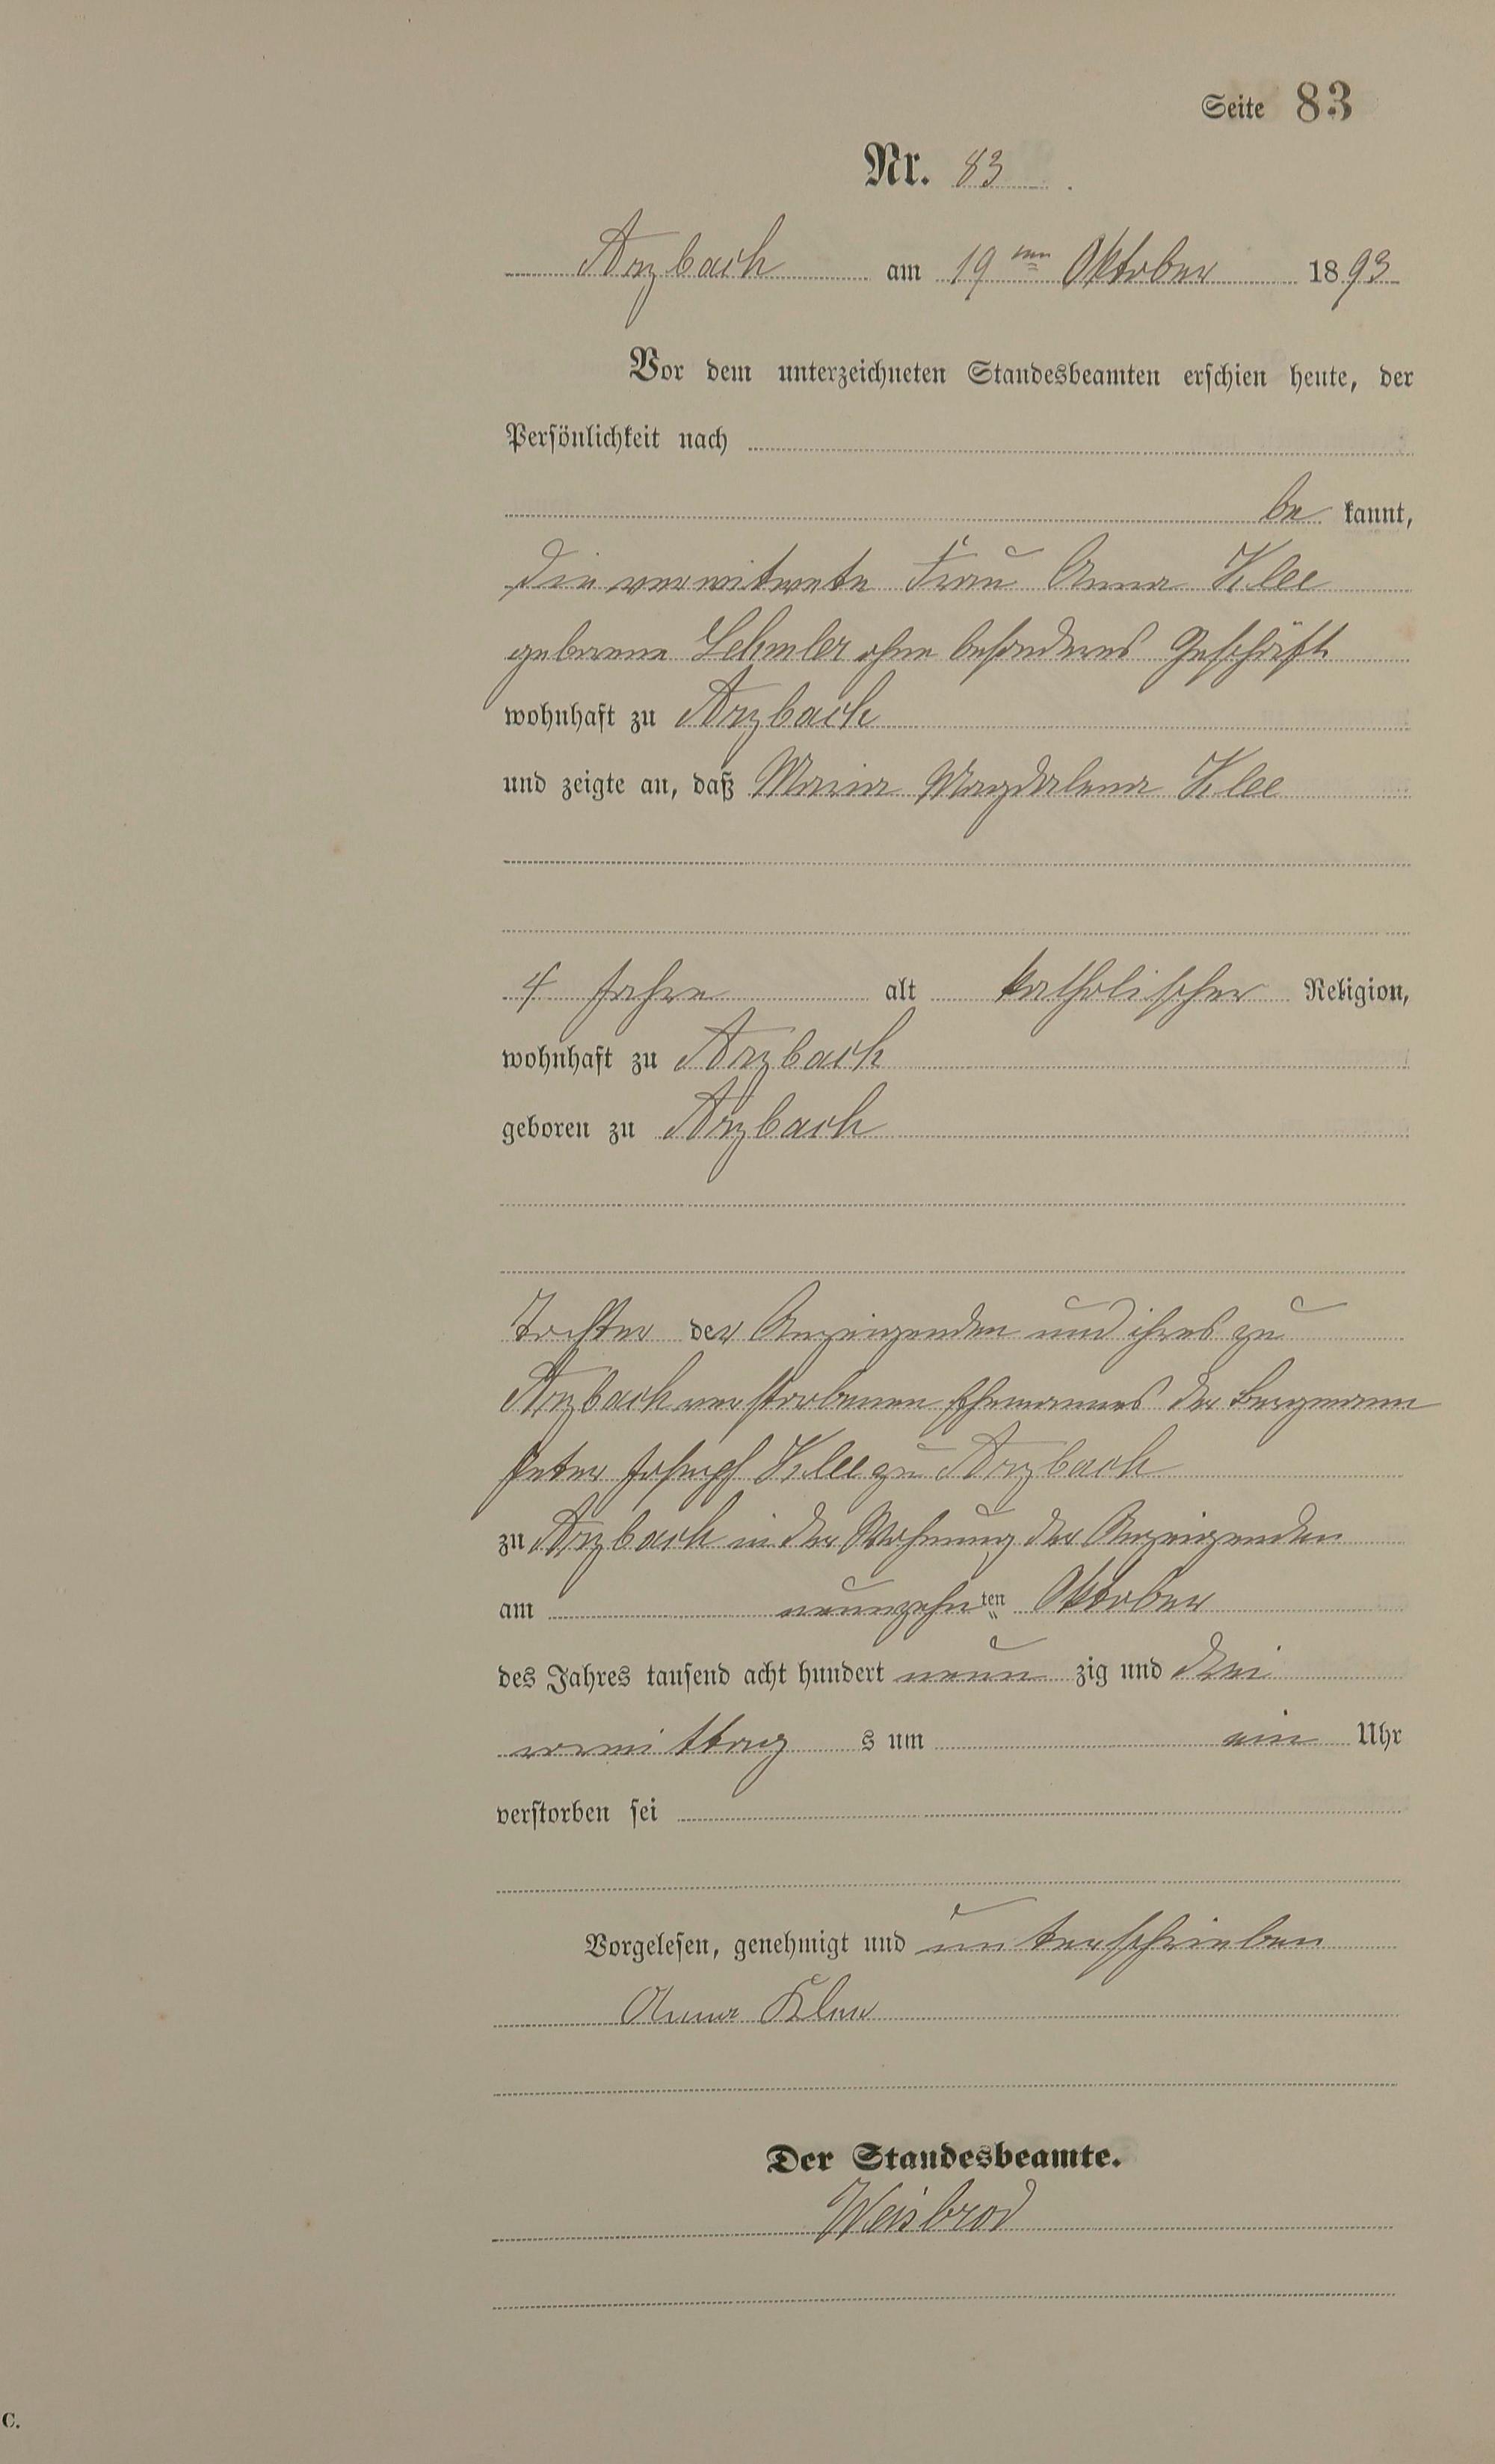 Seite 83
Nr. 83.
Arzbach am 19ten Oktober 1893
Vor dem unterzeichneten Standesbeamten erschien heute, der
Persönlichkeit nach
be kannt,
die verwitwete Frau Anna Klee
geborene Lehmler ohne besonderes Geschäft
wohnhaft zu Arzbach
und zeigte an, daß Maria Magdalena Klee
4 Jahre alt katholischer Religion,
wohnhaft zu Arzbach
geboren zu Arzbach
Tochter der Anzeigenden und ihres zu
Arzbach verstorbenen Ehemannes der Bergmann
Peter Joseph Klee zu Arzbach
zu Arzbach in der Wohnung der Anzeigenden
am neunzehnten Oktober
des Jahres tausend acht hundert neun zig und drei
vormittag s um ein Uhr
verstorben sei
Vorgelesen, genehmigt und unterschrieben
Anna Klee
Der Standesbeamte.
Weisbrod
C.